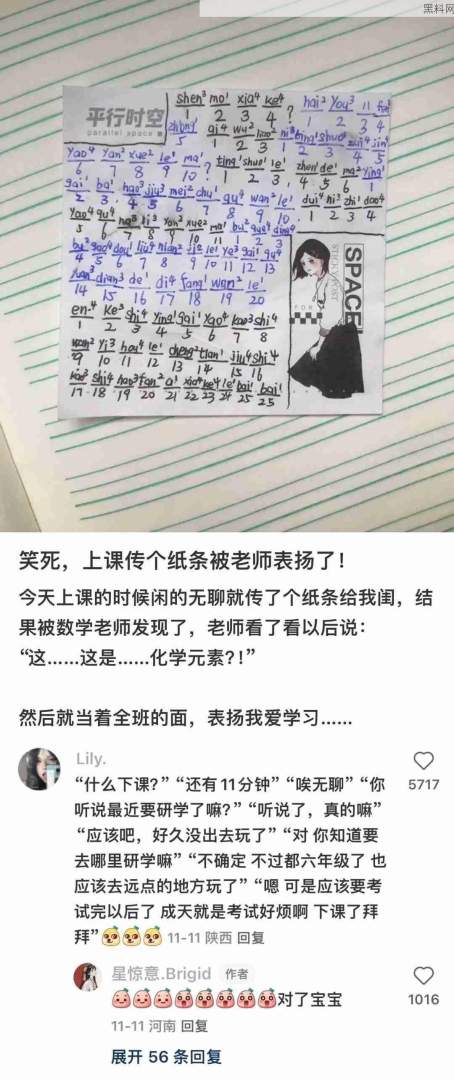 黑料网
平行时空
parallel space
shen² mo¹ xia⁴ ke⁴ ? hai² you³ 11 fen¹
1 2 3 4 1 2 3 4
zhong¹ ai⁴ wu² liao² ni³ ting¹ shuo¹ zui⁴ jin⁴
5 1 2 3 1 2 3 4 5
yao⁴ yan² xue² le¹ ma² ? ting¹ shuo¹ le¹ , zhen¹ de¹ ma² ying¹
6 7 8 9 10 1 2 3 4 5 6 1
gai¹ ba¹ hao³ jiu³ mei² chu¹ qu⁴ wan² le¹ dui⁴ ni³ zhi¹ dao⁴
2 3 4 5 6 7 8 9 10 1 2 3 4
yao⁴ qu⁴ na³ li³ yan² xue² ma¹ bu² que⁴ ding⁴
5 6 7 8 9 10 11 1 2 3
bu² guo⁴ dou¹ liu⁴ nian² ji² le¹ ye³ gai¹ qu⁴
4 5 6 7 8 9 10 11 12 13
yuan³ dian³ de¹ di⁴ fang¹ wan² le¹
14 15 16 17 18 19 20
en⁴ ke³ shi⁴ ying¹ gai¹ yao⁴ kao³ shi⁴
1 2 3 4 5 6 7 8
wan² yi³ hou⁴ le¹ cheng² tian¹ jiu⁴ shi⁴
9 10 11 12 13 14 15 16
kao³ shi⁴ hao³ fan² a¹ xia⁴ ke⁴ le¹ bai¹ bai¹
17 18 19 20 21 22 23 24 25 25
SPACE
笑死，上课传个纸条被老师表扬了！
今天上课的时候闲的无聊就传了个纸条给我闺，结
果被数学老师发现了，老师看了看以后说：
“这......这是......化学元素?!”
然后就当着全班的面，表扬我爱学习......
Lily.
“什么下课?”“还有11分钟”“唉无聊”“你
听说最近要研学了嘛?”“听说了，真的嘛”
“应该吧，好久没出去玩了”“对 你知道要
去哪里研学嘛”“不确定 不过都六年级了 也
应该去远点的地方玩了”“嗯 可是应该要考
试完以后了 成天就是考试好烦啊 下课了拜
拜” 11-11 陕西 回复
5717
星惊意.Brigid 作者
对了宝宝
11-11 河南 回复
1016
展开 56 条回复